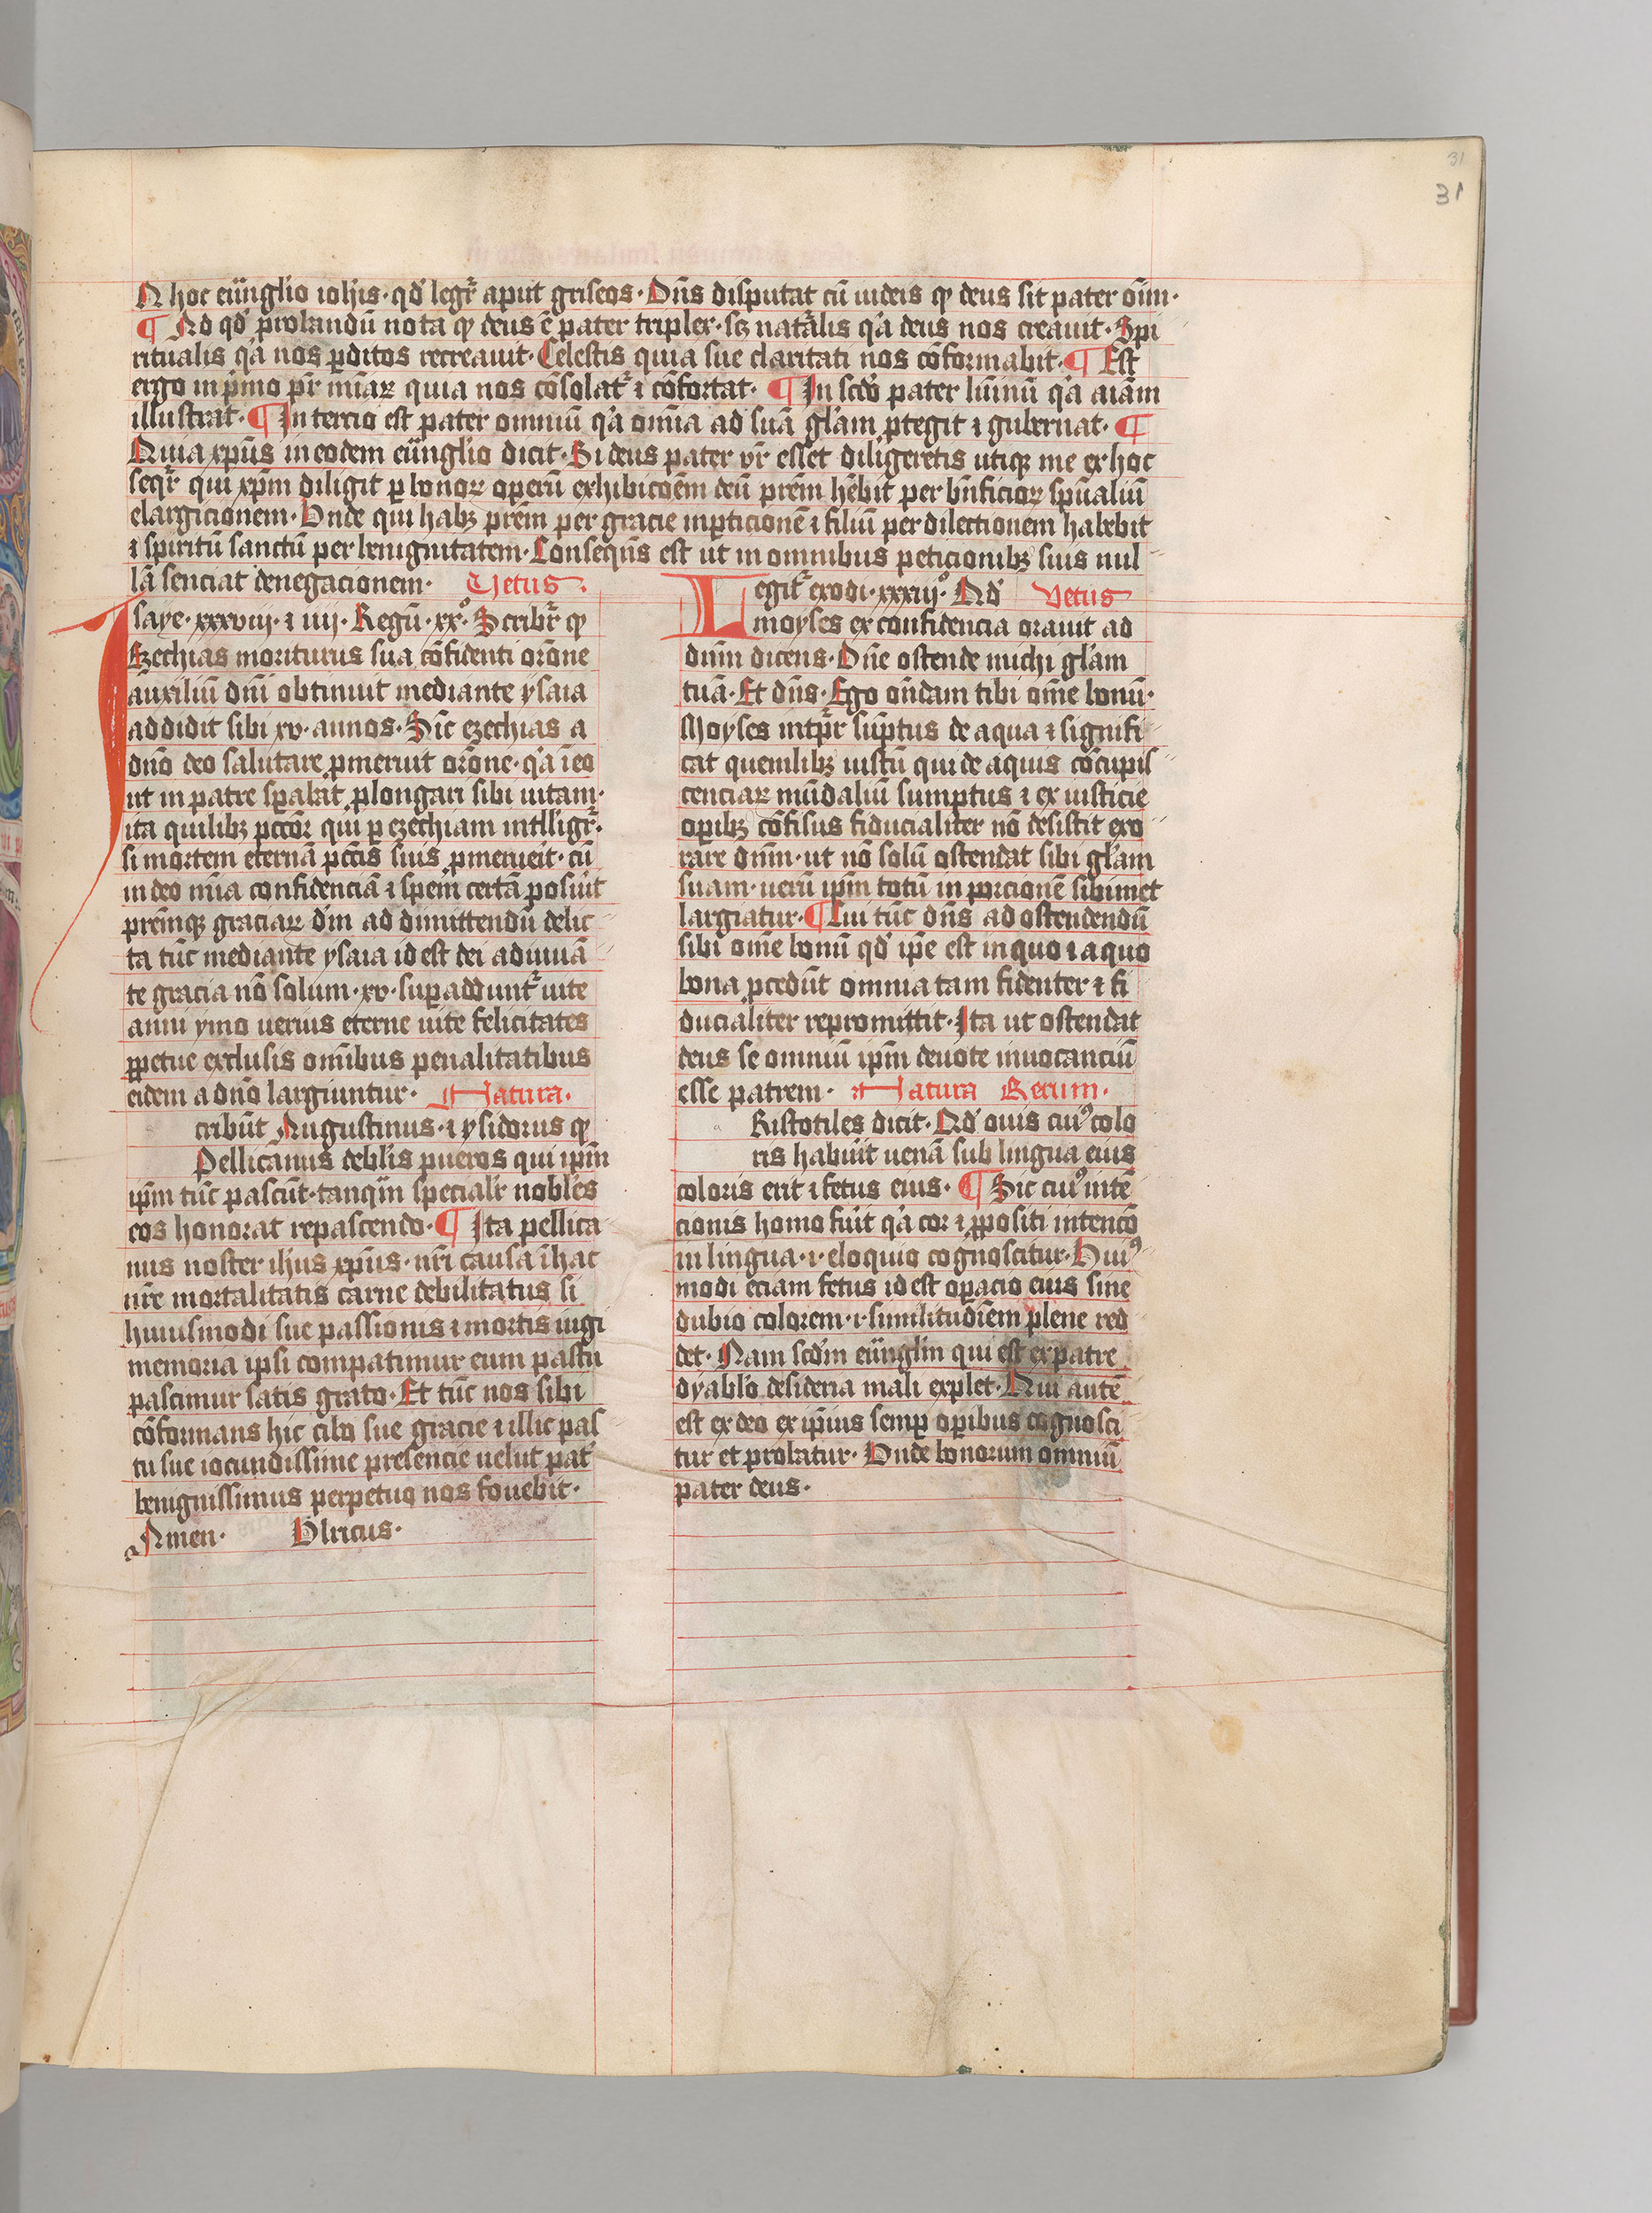 31
31
N hoc euu̅glio ioh̅is · qd̕ legr̅ aput griseos · Dn̅s disputat cu̅ iudeis qꝫ deus sit pater om̅i ·
¶ Ad qd̕ probandu̅ nota qꝫ deus e̅ pater triplex · sꝫ nat̕alis q̕a deus nos creauit · Spi
ritualis q̕a nos ꝑditos recreauit · Celestis quia sue claritati nos co̅formabit · ¶ Est
ergo in p̕mo pr̅ mi̅aꝝ quia nos co̅solat̕ ⁊ co̅fortat · ¶ In scd̕o pater lui̅nu̅ q̕a ai̅am
illustrat · ¶ In tercio est pater omniu̅ q̕a om̅ia ad sua̅ gl̕am ꝓtegit ⁊ gubernat · ¶
Quia xp̅us in eodem euu̅glio dicit · Si deus pater vr̅ esset diligeretis utiqꝫ me ex hoc
seqr̅ qui xp̅m diligit ꝑ bonoꝝ operu̅ exhibico̅em deu̅ pr̅em he̅bit per bn̅ficioꝝ spu̅aliu̅
elargicionem · Vnde qui habꝫ pr̅em per gracie inꝑticione̅ ⁊ filiu̅ per dilectionem habebit
⁊ spiritu̅ sanctu̅ per benignitatem · Conseqn̅s est ut in omnibus peticionibꝫ suis nul
la̅ senciat denegacionem · Vetus ·
Isaye · xxxviii · ⁊ iiii · Regu̅ · xx° · Scribr̅ qꝫ
Ezechias moriturus sua co̅fidenti oro̅ne
auxiliu̅ dn̅i obtinuit mediante ysaia
addidit sibi xv · annos · Sic̅ ezechias a
dn̅o deo salutare ꝓmeruit oro̅ne · q̕a i̅ eo
ut in patre sꝑabat ꝓlongari sibi uitam ·
ita quilibꝫ pcc̅or qui ꝑ ezechiam intlligr̅ ·
si mortem eterna̅ pcc̅is suis ꝓmerueit · cu̅
in deo mi̅a confidencia̅ ⁊ spem certa̅ posuit
pr̅emqꝫ graciaꝝ dn̅i ad dimittendu̅ delic
ta tu̅c mediante ysaia id est dei adiuua̅
te gracia no̅ solum · xv · suꝑaddunt̕ uite
anni ymo uerius eterne uite felicitates
ꝑpetue exclusis om̅ibus penalitatibus
eidem a dn̅o largiuntur · Natura ·
cribu̅t Augustinus · ⁊ ysidorus qꝫ
Pellicanus deblis pueros qui ipm̅
ipm̅ tu̅c pascu̅t · tanqi̅m specialr̅ nobles
eos honorat repascendo · ¶ Ita pellica
nus noster ih̅us xp̅us · nr̅i causa i̅ hac
nr̅e mortalitatis carne debilitatus si
huiusmodi sue passionis ⁊ mortis iugi
memoria ipsi compatimur eum pastu
pascimur satis grato · Et tu̅c nos sibi
co̅formans hic cibo sue gracie ⁊ illic pas
tu sue iocundissime presencie uelut pat̕
benignissimus perpetuo nos fouebit ·
Amen · Vlricus ·
Legit̕ exodi · xxxiii° · Qd̕ Vetus
moyses ex confidencia orauit ad
dn̅m dicens · Dn̅e ostende michi gl̕am
tua̅ · Et dn̅s · Ego on̅dam tibi om̅e bonu̅ ·
Moyses intp̅r̅ su̅ptus de aqua ⁊ signifi
cat quemlibꝫ iustu̅ qui de aquis co̅cupis
cenciaꝝ mu̅daliu̅ sumptus ⁊ ex iusticie
oꝑibꝫ co̅fisus fiducialiter no̅ desistit exo
rare dn̅m · ut no̅ solu̅ ostendat sibi gl̕am
suam · ueru̅ ipm̅ totu̅ in porcione̅ sibimet
largiatur · ¶ Cui tu̅c dn̅s ad ostendendu̅
sibi om̅e bonu̅ qd̕ ip̅e est in quo ⁊ a quo
bona ꝓcedu̅t omnia tam fidenter ⁊ fi
ducialiter repromittit · Ita ut ostendat
deus se omniu̅ ipm̅ deuote inuocanciu̅
esse patrem · Natura Rerum ·
Ristotiles dicit · Qd̕ ouis cuiꝰ colo
ris habuit uena̅ sub lingua eius
coloris erit ⁊ fetus eius · ¶ Sic cuiꝰ inte̅
cionis homo fuit q̕a cor ⁊ ꝓpositi intenco̅
in lingua · i · eloquio cognoscitur · Huiꝰ
modi eciam fetus id est oꝑacio eius sine
dubio colorem · i · similitudi̅em plene red
det · Nam scd̅m euu̅glm̅ qui est ex patre
dyablo desideria mali explet · Qui aute̅
est ex deo ex ip̅ius semꝑ oꝑibus cognosci
tur et probatur · Vnde bonorum omniu̅
pater deus ·